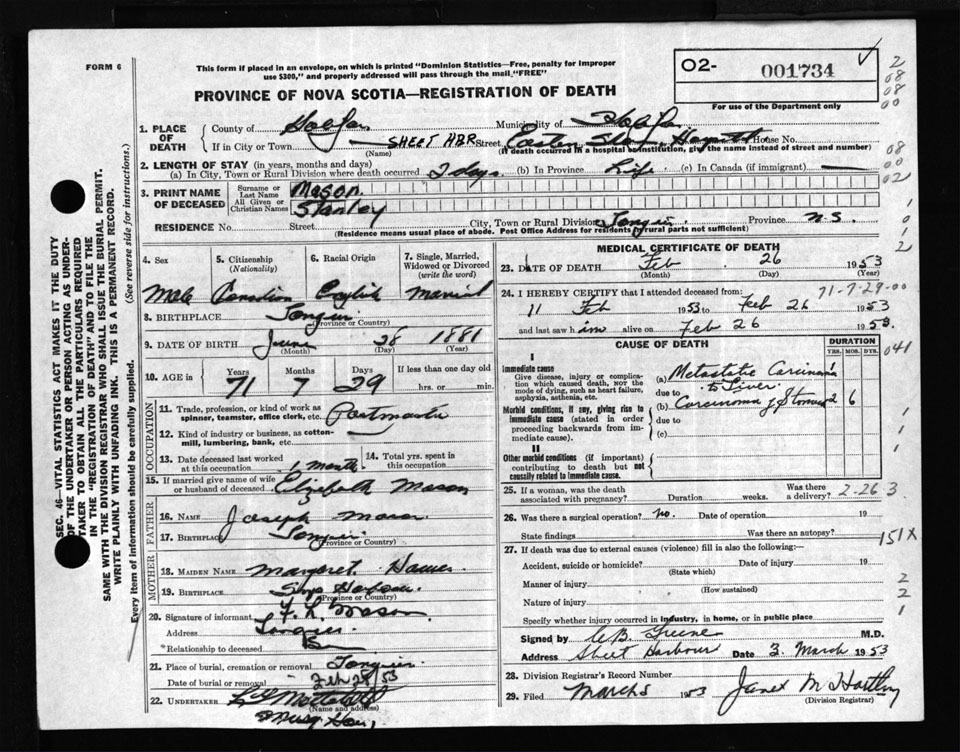 FORM 6
This form if placed in an envelope, on which is printed "Dominion Statistics—Free, penalty for improper
use $300," and properly addressed will pass through the mail "FREE"
PROVINCE OF NOVA SCOTIA—REGISTRATION OF DEATH
O2- 001734
For use of the Department only
2
08
08
00
1. PLACE OF DEATH
County of Halifax Municipality of Halifax
If in City or Town SHEET HBR Street Eastern Shore Hospital House No.
(Name) (If death occurred in a hospital substitution, give the name instead of street and number)
08
00
02
2. LENGTH OF STAY (in years, months and days)
(a) In City, Town or Rural Division where death occurred 2 days (b) In Province Life (c) In Canada (if immigrant) —
3. PRINT NAME OF DECEASED
Surname or Last Name Mason
All Given or Christian Names Stanley
RESIDENCE No. Street City, Town or Rural Division Tangier Province N.S.
(Residence means usual place of abode. Post Office Address for residents rural parts not sufficient)
SEC. 46—VITAL STATISTICS ACT MAKES IT THE DUTY
OF THE UNDERTAKER OR PERSON ACTING AS UNDER-
TAKER TO OBTAIN ALL THE PARTICULARS REQUIRED
IN THE "REGISTRATION OF DEATH" AND TO FILE THE
SAME WITH THE DIVISION REGISTRAR WHO SHALL ISSUE THE BURIAL PERMIT.
WRITE PLAINLY WITH UNFADING INK. THIS IS A PERMANENT RECORD.
Every item of information should be carefully supplied. (See reverse side for instructions.)
4. Sex
Male
5. Citizenship (Nationality)
Canadian
6. Racial Origin
English
7. Single, Married, Widowed or Divorced (write the word)
Married
8. BIRTHPLACE Tangier
(Province or Country)
9. DATE OF BIRTH June 28 1881
(Month) (Day) (Year)
10. AGE in Years Months Days If less than one day old
71 7 29 hrs. or min.
OCCUPATION
11. Trade, profession, or kind of work as spinner, teamster, office clerk, etc. Postmaster
12. Kind of industry or business, as cotton-mill, lumbering, bank, etc.
13. Date deceased last worked at this occupation 1 month
14. Total yrs. spent in this occupation
15. If married give name of wife or husband of deceased Elizabeth Mason
FATHER
16. NAME Joseph Mason
17. BIRTHPLACE Tangier
(Province or Country)
MOTHER
18. MAIDEN NAME Margaret
19. BIRTHPLACE Ship Harbour
(Province or Country)
20. Signature of informant F. L. Mason
Address Tangier
*Relationship to deceased
21. Place of burial, cremation or removal Tangier
Date of burial or removal Feb 28/53
22. UNDERTAKER
(Name and address)
Musq. Har.
MEDICAL CERTIFICATE OF DEATH
23. DATE OF DEATH Feb 26 1953
(Month) (Day) (Year)
24. I HEREBY CERTIFY that I attended deceased from: 71-7-29-00
11 Feb 1953 to Feb 26 1953
and last saw him alive on Feb 26 1953.
CAUSE OF DEATH DURATION
YRS. MOS. DYS.
041
I
Immediate cause
Give disease, injury or complication which caused death, NOT the mode of dying, such as heart failure, asphyxia, asthenia, etc.
(a) Metastatic Carcinoma
due to to Liver
Morbid conditions, if any, giving rise to immediate cause (stated in order proceeding backwards from immediate cause).
(b) Carcinoma of Stomach 2 6
due to
(c)
II
Other morbid conditions (if important) contributing to death but not causally related to immediate cause.
25. If a woman, was the death associated with pregnancy? Duration weeks. Was there a delivery? 2-26 3
26. Was there a surgical operation? No. Date of operation 19
State findings Was there an autopsy?
151X
27. If death was due to external causes (violence) fill in also the following:—
Accident, suicide or homicide? Date 19
(State which)
Manner of injury
(How sustained)
Nature of injury
Specify whether injury occurred in industry, in home, or in public place
Signed by C B Greene M.D.
Address Sheet Harbour Date 3 March 1953
28. Division Registrar's Record Number
29. Filed March 5 1953 Janet M Hartling
(Division Registrar)